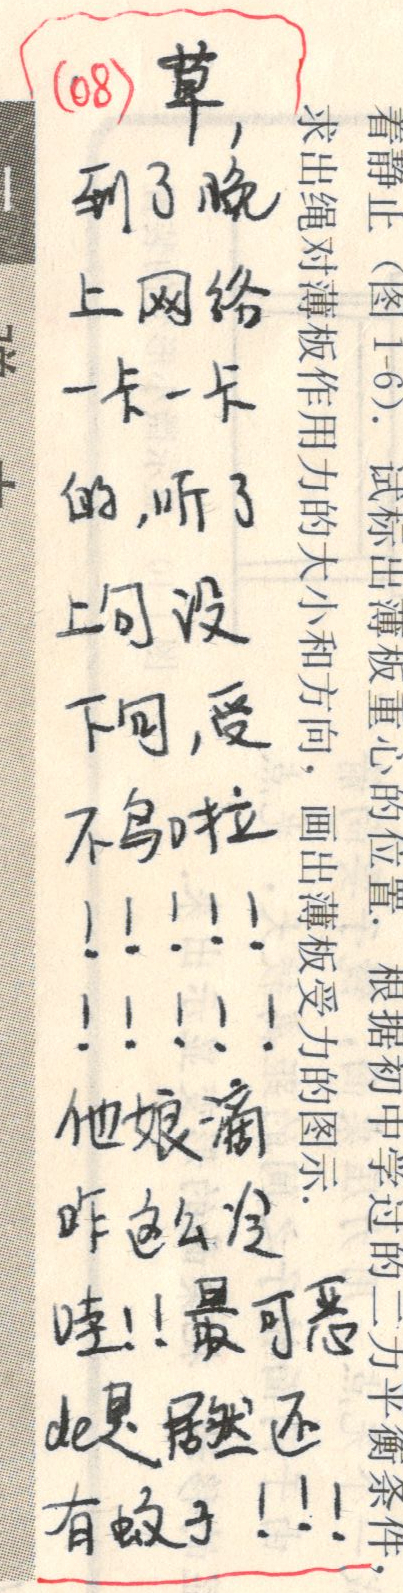 (08) 草,
到了晚
上网络
一卡一卡
的,听了
上句没
下句,受
不鸟啦
!!!!!
!!!!!
他娘滴
咋这么冷
哇!!最可恶
de是居然还
有蚊子!!!
着静止(图1-6). 试标出薄板重心的位置. 根据初中学过的二力平衡条件,
求出绳对薄板作用力的大小和方向,画出薄板受力的图示.